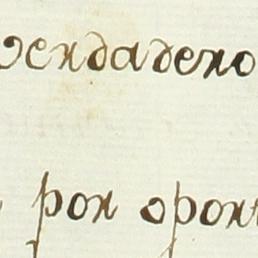 verdadero
por opor